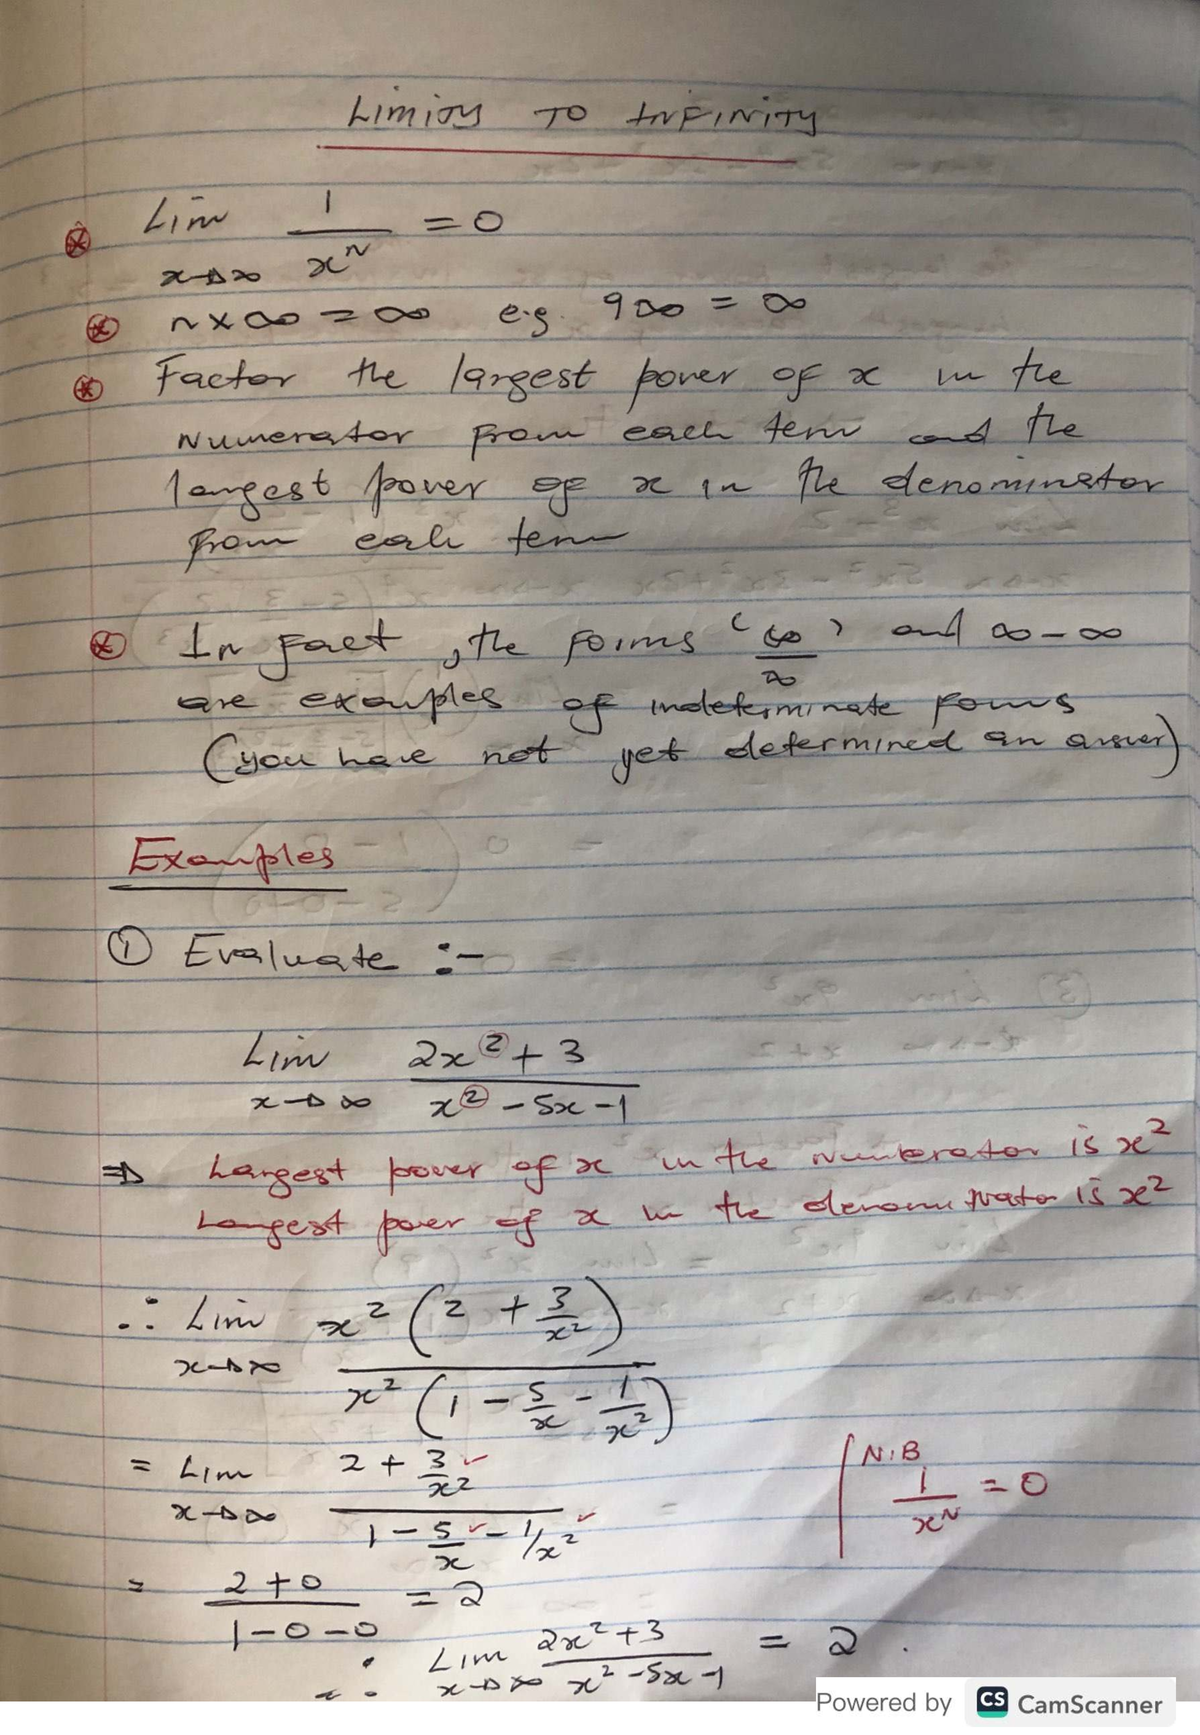 Limits To Infinity
Lim x→∞ 1/xⁿ = 0
n×∞ = ∞ e.g. 9∞ = ∞
Factor the largest power of x in the
Numerator from each term and the
largest power of x in the denominator
from each term
In fact, the forms '∞/∞' and ∞-∞
are examples of indeterminate forms
(you have not yet determined an answer)
Examples
① Evaluate :-
Lim x→∞ (2x²+3)/(x²-5x-1)
⇒ Largest power of x in the Numerator is x²
Largest power of x in the denominator is x²
∴ Lim x→∞ x²(2 + 3/x²) / x²(1 - 5/x - 1/x²)
= Lim x→∞ (2 + 3/x²) / (1 - 5/x - 1/x²)
N.B
1/xᴺ = 0
= (2+0)/(1-0-0) = 2
∴ Lim x→∞ (2x²+3)/(x²-5x-1) = 2.
Powered by CS CamScanner